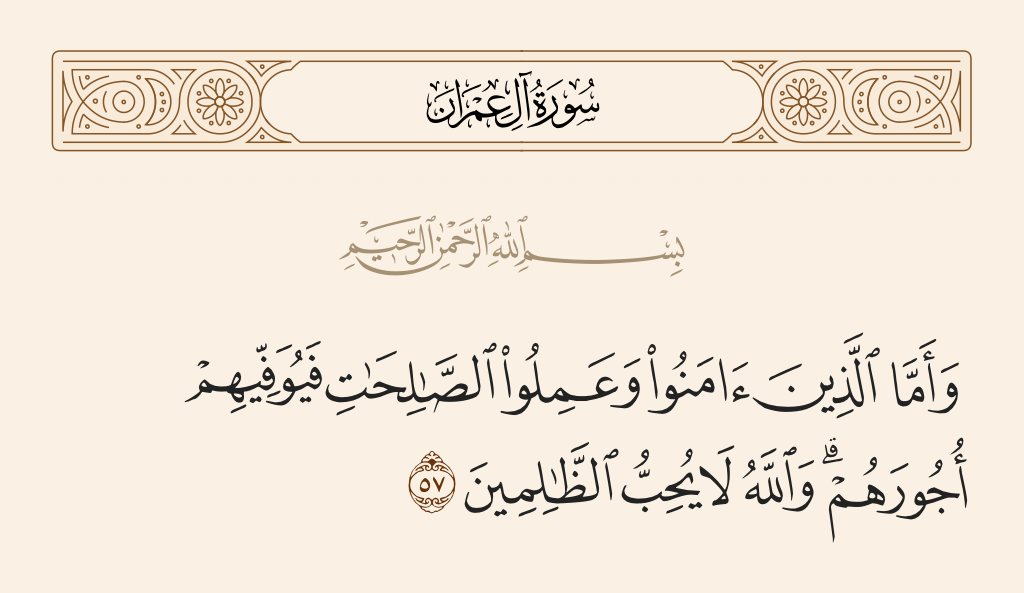 سُورَةُ آلِ عِمْرَانَ
بِسْمِ ٱللَّهِ ٱلرَّحْمَٰنِ ٱلرَّحِيمِ
وَأَمَّا ٱلَّذِينَ ءَامَنُوا۟ وَعَمِلُوا۟ ٱلصَّٰلِحَٰتِ فَيُوَفِّيهِمْ
أُجُورَهُمْ ۗ وَٱللَّهُ لَا يُحِبُّ ٱلظَّٰلِمِينَ ٥٧